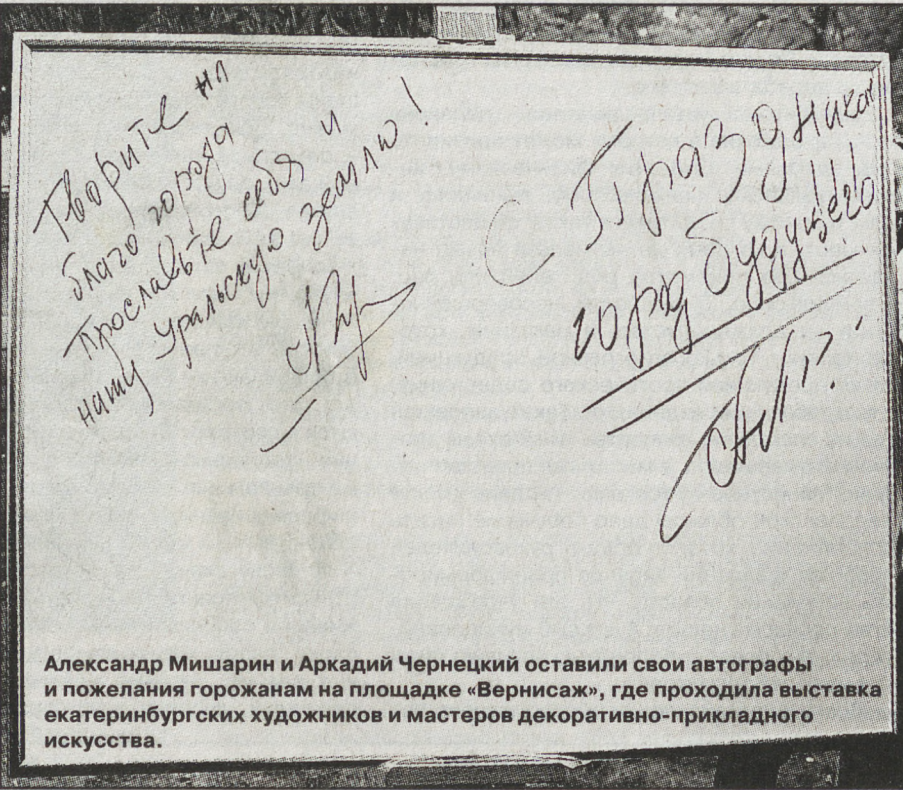 Творите на
благо города
Прославьте себя и
нашу Уральскую землю!
С Праздником
город будущего
!!!
Александр Мишарин и Аркадий Чернецкий оставили свои автографы
и пожелания горожанам на площадке «Вернисаж», где проходила выставка
екатеринбургских художников и мастеров декоративно-прикладного
искусства.